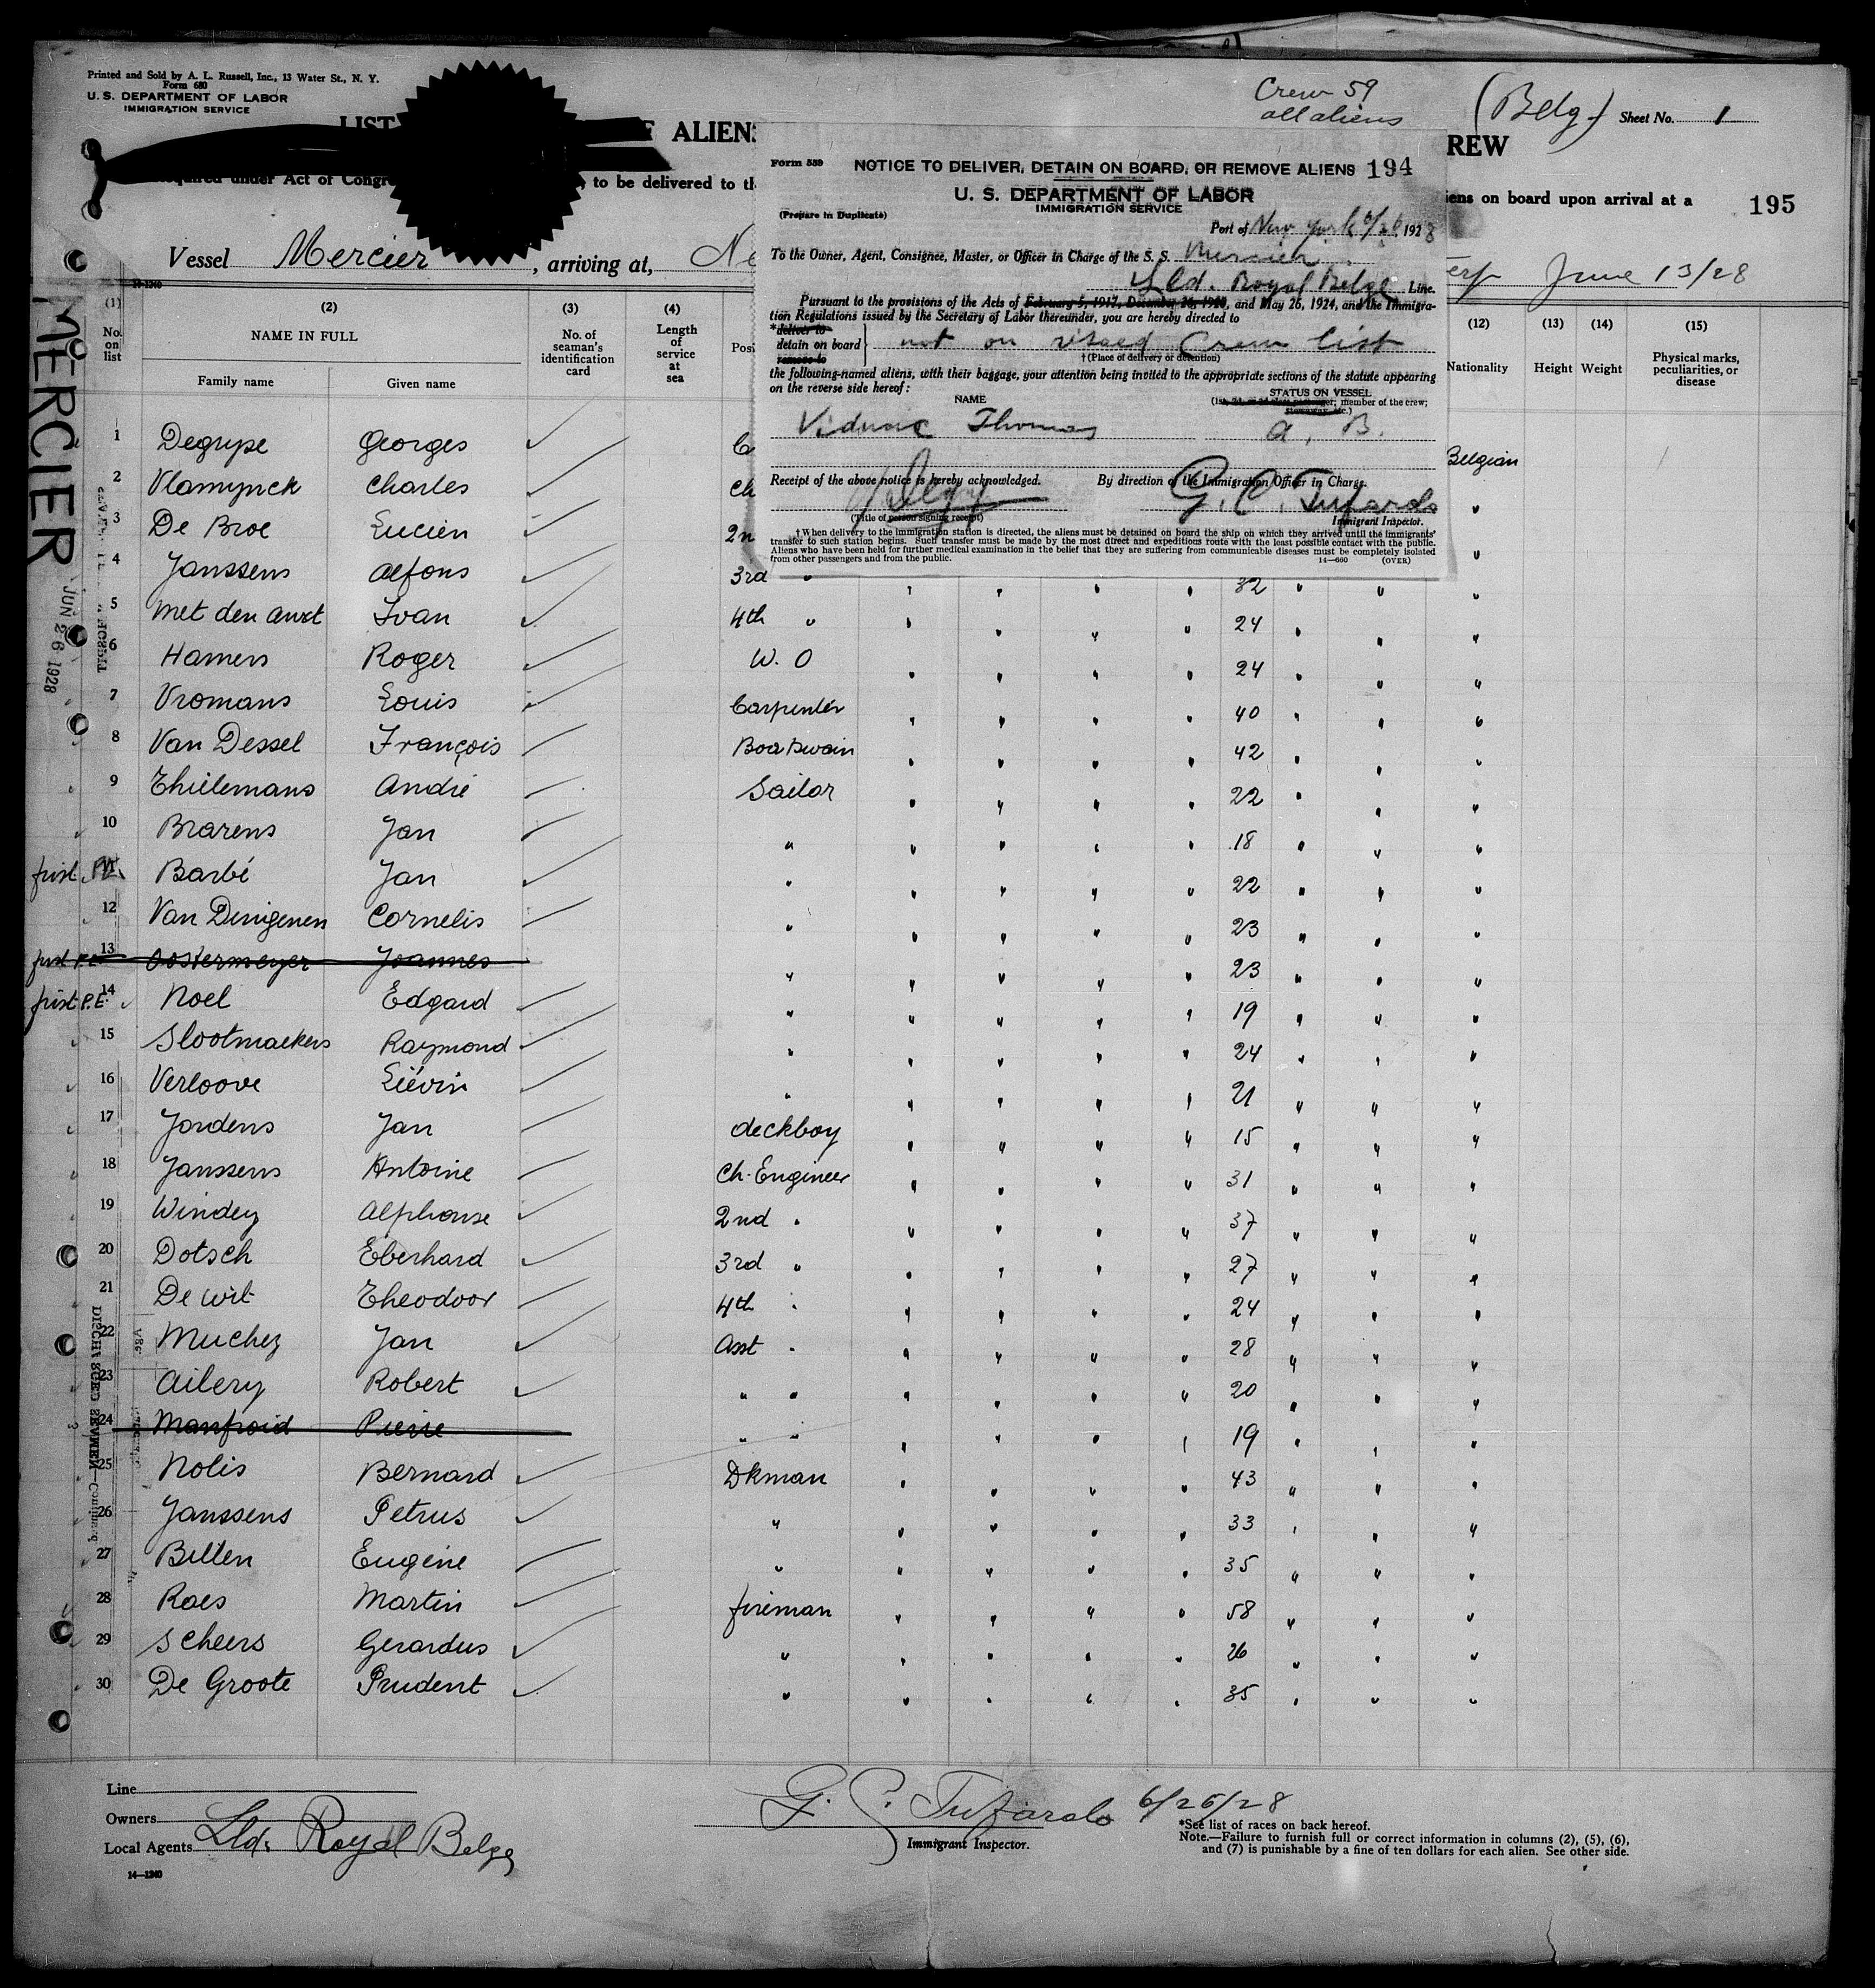 Printed and Sold by A. L. Russell, Inc., 13 Water St., N. Y.
Form 680
U. S. DEPARTMENT OF LABOR
IMMIGRATION SERVICE
Crew 59
all aliens
(Belg.) Sheet No. 1
LIST F ALIENS REW
required under Act of Congre , to be delivered to th iens on board upon arrival at a 195
Vessel Mercier, arriving at, Ne June 13/28
Form 559 NOTICE TO DELIVER, DETAIN ON BOARD, OR REMOVE ALIENS 194
U. S. DEPARTMENT OF LABOR
IMMIGRATION SERVICE
(Prepare in Duplicate)
Port of New York 6/26, 1928
To the Owner, Agent, Consignee, Master, or Officer in Charge of the S. S. Mercier
Lld. Royal Belge Line.
Pursuant to the provisions of the Acts of February 5, 1917, December 26, 1920, and May 26, 1924, and the Immigra-
tion Regulations issued by the Secretary of Labor thereunder, you are hereby directed to
*deliver to
detain on board
remove to
not on visaed Crew list
†(Place of delivery or detention)
the following-named aliens, with their baggage, your attention being invited to the appropriate sections of the statute appearing
on the reverse side hereof:
NAME
STATUS ON VESSEL
member of the crew;
Thomas A. B.
Receipt of the above notice is hereby acknowledged. By direction of the Immigration Officer in Charge.
G. C. Tufarolo
(Title of person signing receipt) Immigrant Inspector.
†When delivery to the immigration station is directed, the aliens must be detained on board the ship on which they arrived until the immigrants'
transfer to such station begins. Such transfer must be made by the most direct and expeditious route with the least possible contact with the public.
Aliens who have been held for further medical examination in the belief that they are suffering from communicable diseases must be completely isolated
from other passengers and from the public. 14—660 (OVER)
14-1240
(1) (2) (3) (4) (12) (13) (14) (15)
No. on list
NAME IN FULL
Family name Given name
No. of seaman's identification card
Length of service at sea
Pos
Nationality Height Weight
Physical marks, peculiarities, or disease
MERCIER
JUN 26 1928
1 Degrype Georges C Belgian
2 Vlamynck Charles Ch "
3 De Broe Lucien 2n "
4 Janssens Alfons 3rd " 32 "
5 Met den Anxt Ivan 4th " 24 "
6 Hamers Roger W. O 24 "
7 Vromans Louis Carpenter 40 "
8 Van Dessel François Boatswain 42 "
9 Thielemans André Sailor 22 "
10 Brarens Jan " 18 "
first 11 Barbé Jan " 22 "
12 Van Dinigenen Cornelis " 23 "
first P.E. 13 Oostermeyer Joannes " 23 "
first P.E. 14 Noel Edgard " 19 "
15 Slootmaekers Raymond " 24 "
16 Verloove Liévin " 21 "
17 Jordens Jan deckboy 15 "
18 Janssens Antoine Ch. Engineer 31 "
19 Windey Alphonse 2nd " 37 "
20 Dotsch Eberhard 3rd " 27 "
21 De Wit Theodoor 4th " 24 "
22 Muchez Jan Asst " 28 "
23 Ailery Robert " " 20 "
24 Manfroid Pierre " " 19 "
25 Nolis Bernard Dkman 43 "
26 Janssens Petrus " 33 "
27 Billen Eugène " 35 "
28 Raes Martin fireman 58 "
29 Scheers Gerardus " 26 "
30 De Groote Prudent " 35 "
Line
Owners
Local Agents Lld. Royal Belge
14—1240
G. C. Tufarolo 6/26/28
Immigrant Inspector.
*See list of races on back hereof.
Note.—Failure to furnish full or correct information in columns (2), (5), (6),
and (7) is punishable by a fine of ten dollars for each alien. See other side.